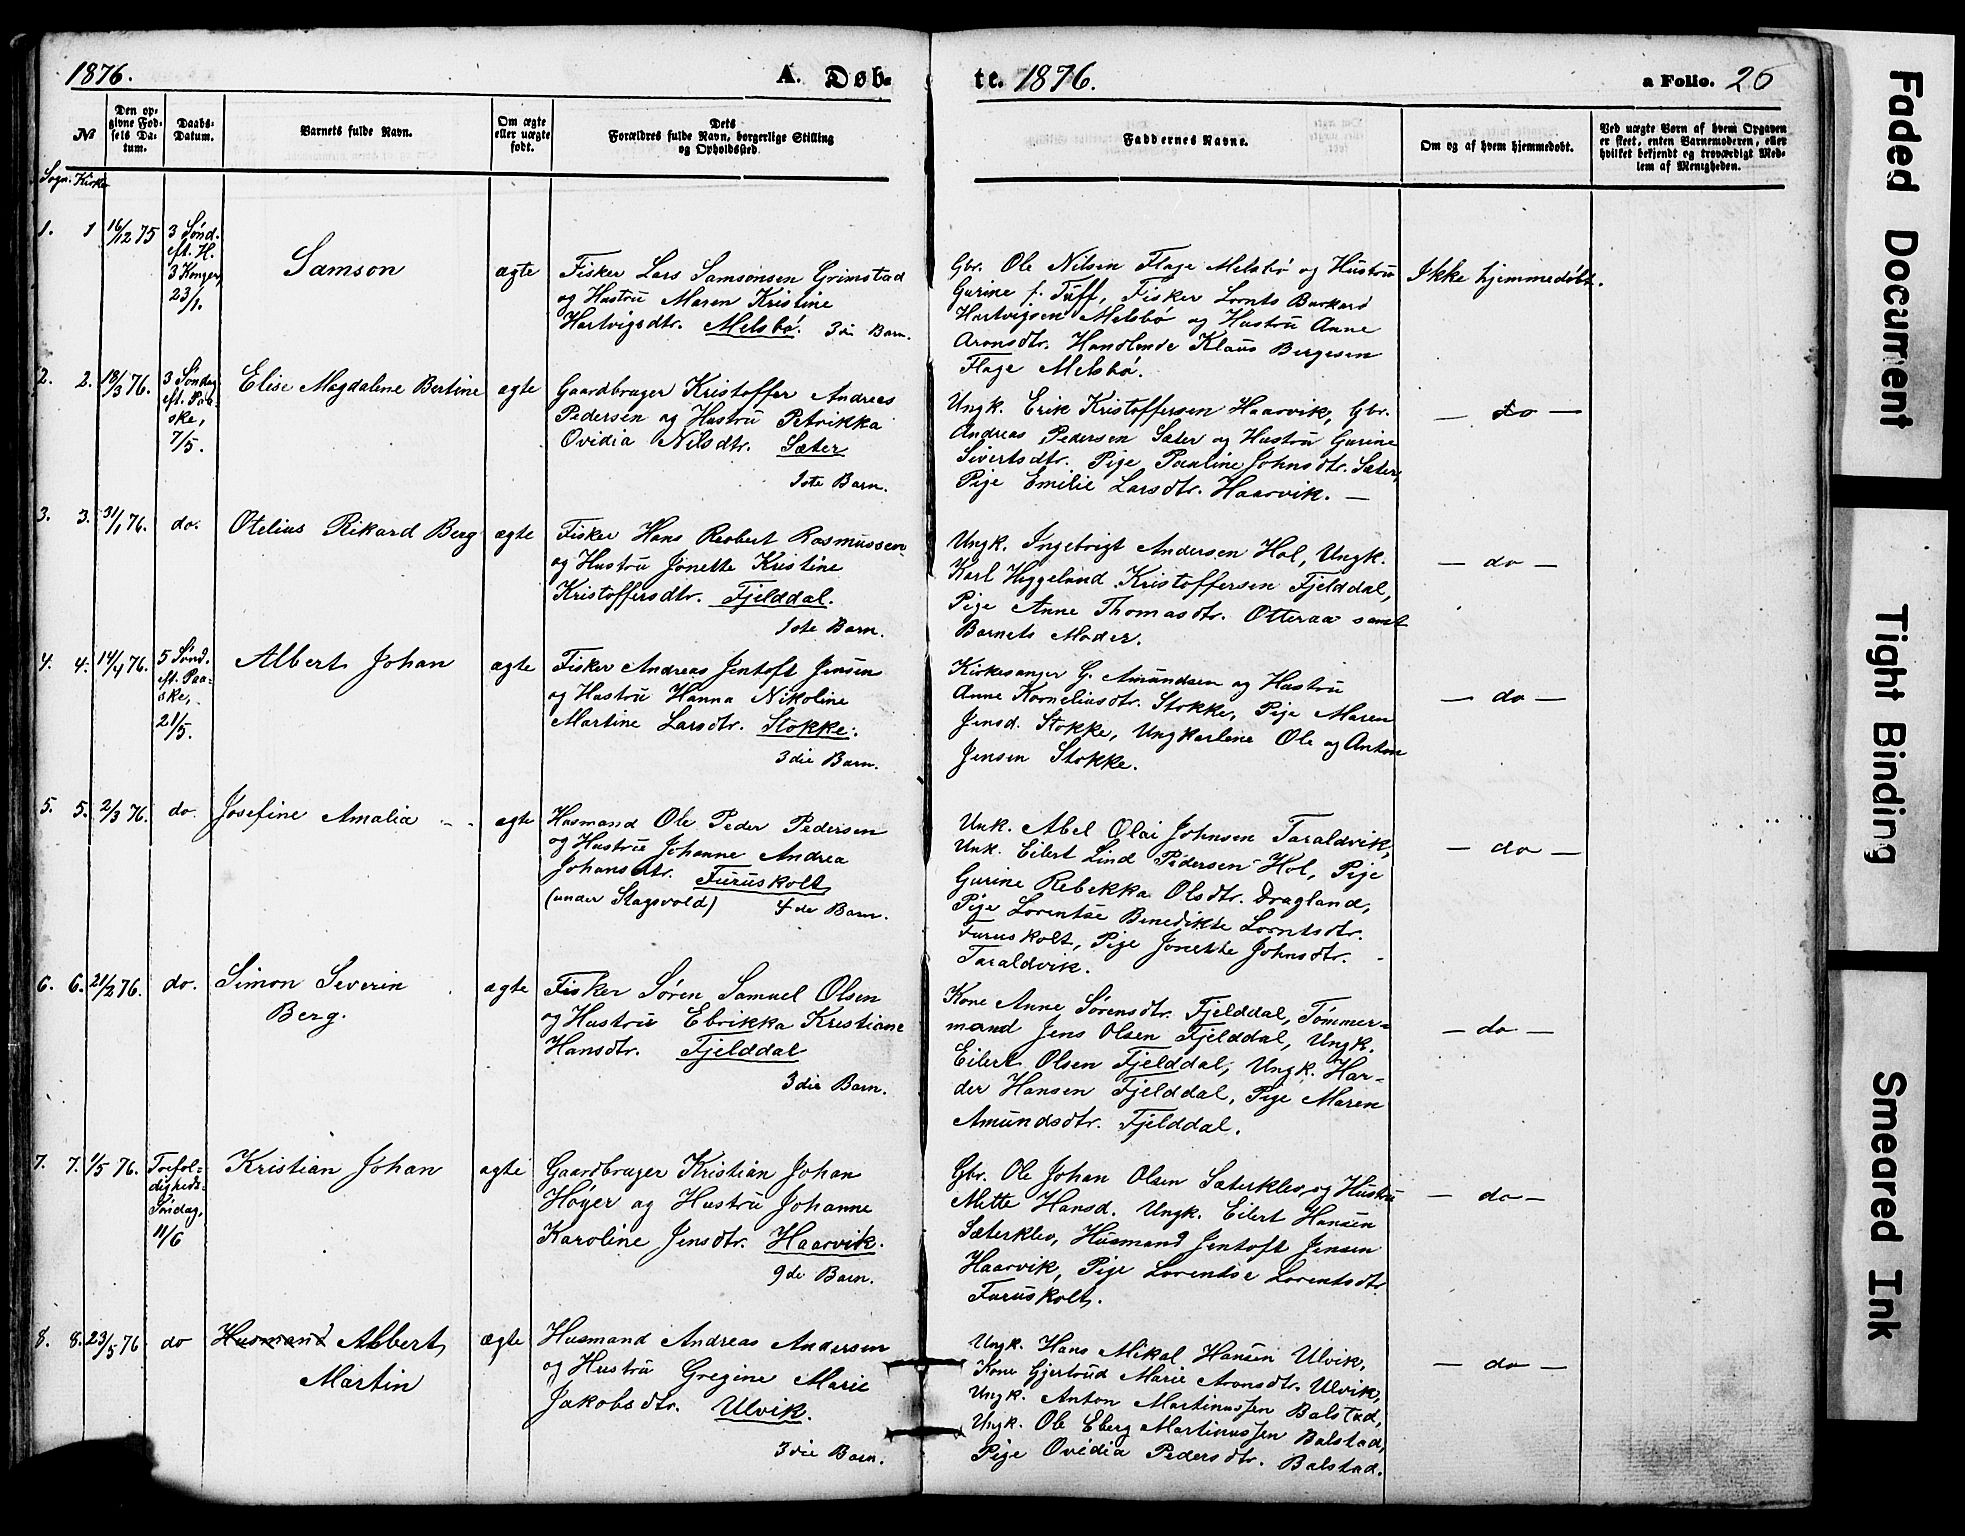 1876.
A. Døb-
te. 1876.
a Folio. 26
No
Den op-
givne Fød-
sels Da-
tum.
Daabs-
Datum.
Barnets fulde Navn.
Om ægte
eller uægte
født.
Dets
Forældres fulde Navn, borgerlige Stilling
og Opholdssted.
Faddernes Navne.
Om og af hvem hjemmedøbt.
Ved uægte Børn af hvem Opgaven
er skeet, enten Barnemoderen, eller
hvilket bekjendt og troværdigt Med-
lem af Menigheden.
Sogn. Kirke
1. 1
16/12 75
3 Sønd.
eft. H.
3 Konger,
23/1.
Samson
ægte
Fisker Lars Samsonsen Grimstad
og Hustru Maren Kristine
Hartvigsdtr. Melsbø. 3die Barn.
Gbr. Ole Nilsen Flage Melsbø og Hustru
Gurine f. Tuff, Fisker Lornts Burkard
Hartvigsen Melsbø og Hustru Anne
Aronsdtr. Handlende Klaus Bergesen
Flage Melsbø.
Ikke hjemmedøbt.
2. 2.
18/3 76.
3 Søndag
eft. Paa-
ske,
7/5.
Elise Magdalene Bertine
ægte
Gaardbruger Kristoffer Andreas
Pedersen og Hustru Petrikka
Ovidia Nilsdtr. Sæter
1ste Barn.
Ungk. Erik Kristoffersen Haarvik, Gbr.
Andreas Pedersen Sæter og Hustru Gurine
Sivertsdtr. Pige Pauline Johnsdtr. Sæter,
Pige Emilie Larsdtr. Haarvik. —
— do —
3. 3.
31/1 76.
do.
Otelius Rikard Berg
ægte
Fisker Hans Reobert Rasmussen
og Hustru Jonette Kristine
Kristoffersdtr. Fjelddal.
1ste Barn.
Ungk. Ingebrigt Andersen Hol, Ungk.
Karl Heggelund Kristoffersen Fjelddal,
Pige Anne Thomasdtr. Otteraa samt
Barnets Moder.
— do —
4. 4.
14/4 76.
5 Sønd.
eft. Paa-
ske,
21/5.
Albert Johan
ægte
Fisker Andreas Jentoft Jensen
og Hustru Hanna Nikoline
Martine Larsdtr. Stokke.
3die Barn.
Kirkesanger G. Amundsen og Hustru
Anne Korneliusdtr. Stokke, Pige Maren
Jensd. Stokke, Ungkarlene Ole og Anton
Jensen Stokke.
— do —
5. 5.
2/3 76.
do.
Josefine Amalia - -
ægte
Husmand Ole Peder Pedersen
og Hustru Johanne Andrea
Johansdtr. Furuskolt
(under Stagsvold) 4de Barn.
Unk. Abel Olai Johnsen Taraldvik,
Unk. Eilert Lind Pedersen Hol, Pige
Gurine Rebekka Olsdtr. Dragland,
Pige Lorentse Benedikte Lorntsdtr.
Furuskolt, Pige Jonette Johnsdtr.
Taraldvik.
— do —
6. 6.
21/2 76.
do.
Simon Severin
Berg.
ægte
Fisker Søren Samuel Olsen
og Hustru Ebrikka Kristiane
Hansdtr. Fjelddal
3die Barn.
Kone Anne Sørensdtr. Fjelddal, Tømmer-
mand Jens Olsen Fjelddal, Ungk.
Eilert Olsen Fjelddal, Ungk. Har-
der Hansen Fjelddal, Pige Maren
Amundsdtr. Fjelddal.
— do —
7. 7.
1/5 76.
Trefol-
digheds-
Søndag,
11/6
Kristian Johan
ægte
Gaardbruger Kristian Johan
Høyer og Hustru Johanne
Karoline Jensdtr. Haarvik.
9de Barn.
Gbr. Ole Johan Olsen Sæterklev, og Hustru
Mette Hansd. Ungk. Eilert Hansen
Sæterklev, Husmand Jentoft Jensen
Haarvik, Pige Lorentse Lorentsdtr.
Furuskolt.
— do —
8. 8.
23/5 76
do
Husmand Albert
Martin
ægte
Husmand Andreas Andersen
og Hustru Gregine Marie
Jakobsdtr. Ulvik.
3die Barn.
Ungk. Hans Mikal Hansen Ulvik,
Kone Gjertrud Marie Aronsdtr. Ulvik,
Ungk. Anton Martinussen Balstad,
Ungk. Ole Eberg Martinussen Balstad,
Pige Ovidia Pedersdtr. Balstad.
— do —
Faded Document
Tight Binding
Smeared Ink